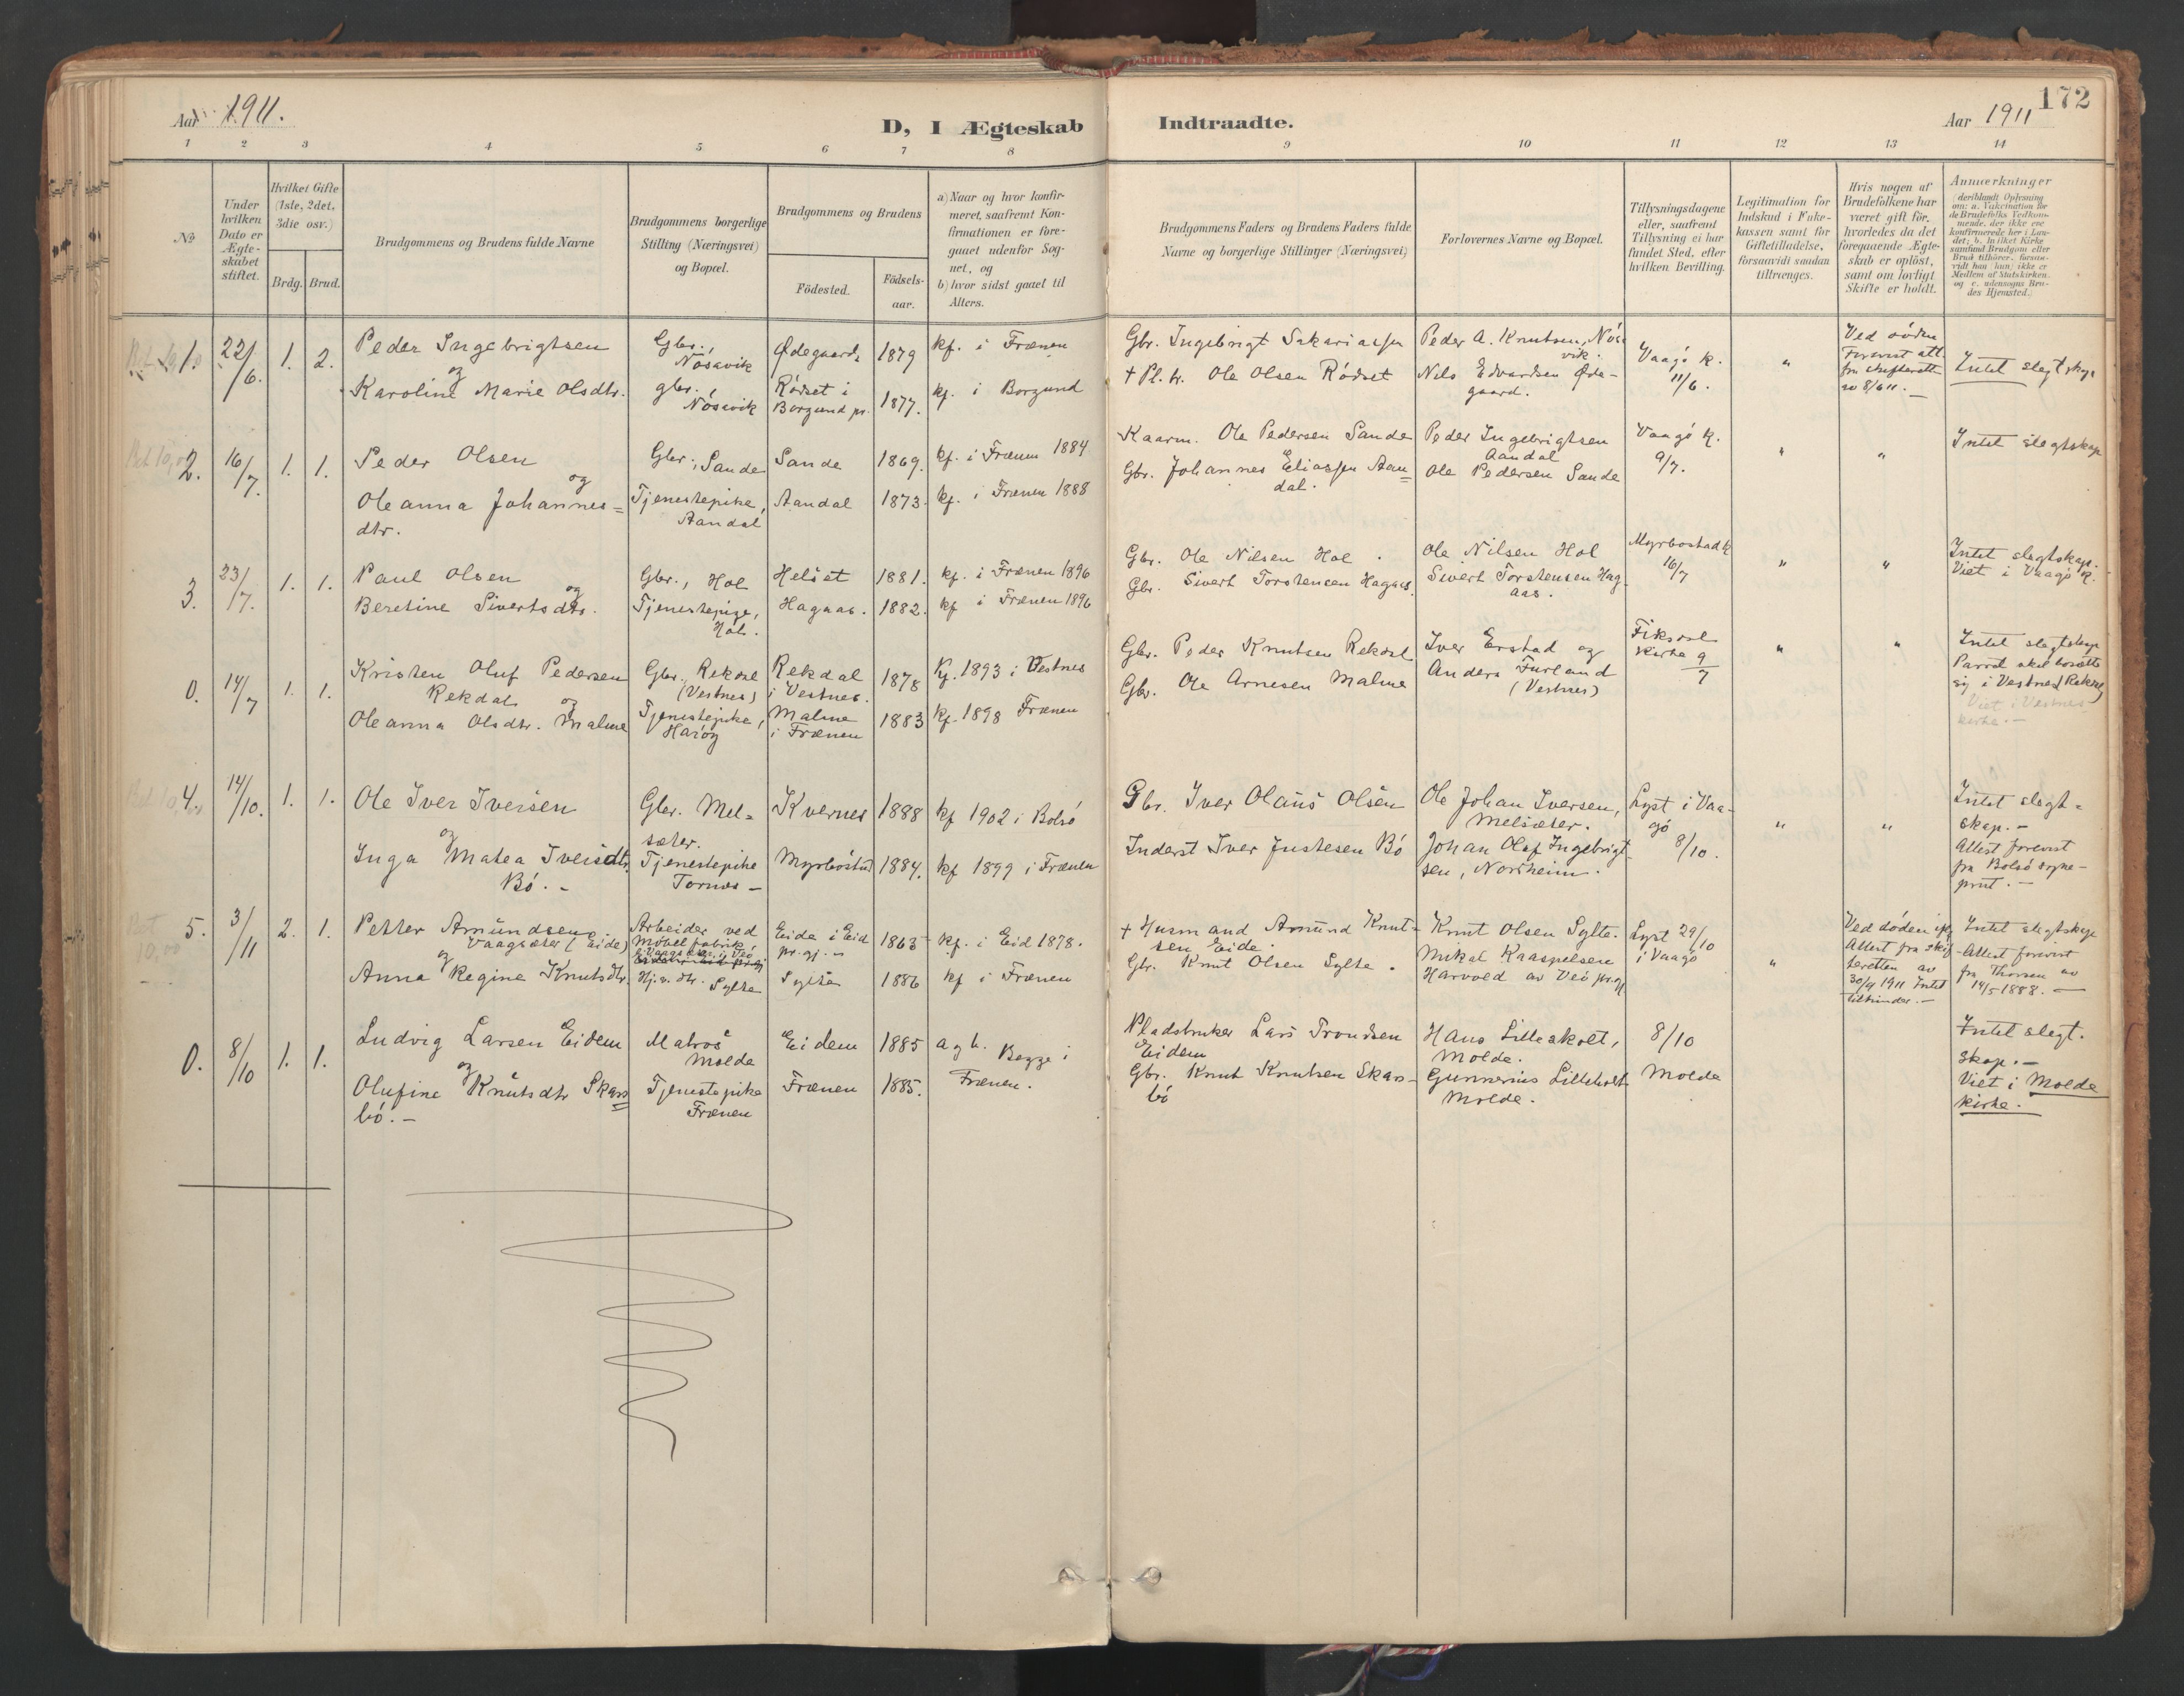 172
Aar 1911.
D, I Ægteskab
Indtraadte.
Aar 1911
1 2 3 4 5 6 7 8 9 10 11 12 13 14
№
Under
hvilken
Dato er
Ægte-
skabet
stiftet.
Hvilket Gifte
(1ste, 2det,
3die osv.)
Brdg. Brud.
Brudgommens og Brudens fulde Navne
Brudgommens borgerlige
Stilling (Næringsvei)
og Bopæl.
Brudgommens og Brudens
Födested.
Födsels-
aar.
a) Naar og hvor konfir-
meret, saafremt Kon-
firmationen er fore-
gaaet udenfor Sog-
net, og
b) hvor sidst gaaet til
Alters.
Brudgommens Faders og Brudens Faders fulde
Navne og borgerlige Stillinger (Næringsvei)
Forlovernes Navne og Bopæl.
Tillysningsdagene
eller, saafremt
Tillysning ei har
fundet Sted, efter
hvilken Bevilling.
Legitimation for
Indskud i Enke-
kassen samt for
Giftetilladelse,
forsaavidt saadan
tiltrænges.
Hvis nogen af
Brudefolkene har
været gift för,
hvorledes da det
foregaaende Ægte-
skab er oplöst,
samt om lovligt
Skifte er holdt.
Anmærkninger
(deriblandt Oplysning
om: a. Vakcination for
de Brudefolks Vedkom-
mende, der ikke ere
konfirmerede her i Lan-
det; b. hvilket Kirke
samfund Brudgom eller
Brud tilhörer, forsaa-
vidt han (hun) ikke er
Medlem af Statskirken,
og c. udensogns Bru-
des Hjemsted.)
1. 22/6. 1. 2.
Peder Ingebrigtsen
og
Karoline Marie Olsdtr.
Gbr.,
Nösavik
gbr.,
Nösavik
Ødegaard
Rödset i
Borgund pr.
1879
1877.
kf. i Frænen
kf. i Borgund
Gbr. Ingebrigt Sakariassen
+ Pl. br. Ole Olsen Rödset
Peder A. Knutsen, Nösa
vik.
Nils Edvardsen Øde-
gaard.
Vaagö k.
11/6.
"
Ved döden
Forevist att.
fra skifterett
av 8/6 11. –
Intet slegtskap
2. 16/7. 1. 1.
Peder Olsen
og
Oleanna Johannes=
dtr.
Gbr., Sande
Tjenestepike,
Aandal
Sande
Aandal
1869.
1873.
kf. i Frænen 1884
kf. i Frænen 1888
Kaarm. Ole Pedersen Sande
Gbr. Johannes Eliassen Aan=
dal.
Peder Ingebrigtsen
Aandal
Ole Pedersen Sande
Vaagö k.
9/7.
"
"
Intet slegtskap
3. 23/7. 1. 1.
Paul Olsen
og
Beretine Sivertsdtr.
Gbr., Hol
Tjenestepige,
Hol.
Helset
Hagaas.
1881.
1882.
kf. i Frænen 1896
kf i Frænen 1896
Gbr. Ole Nilsen Hol.
Gbr. Sivert Torstensen Hagaas.
Ole Nilsen Hol
Sivert Torstensen Hag-
aas.
Myrbostad k
16/7
"
"
Intet slegtskap.
Viet i Vaagö k.
0. 14/7 1. 1.
Kristen Oluf Pedersen
Rekdal
og
Oleanna Olsdtr. Malme
Gbr., Rekdal
(Vestnes)
Tjenestepike,
Haröy
Rekdal
i Vestnes.
Malme
i Frænen
1878
1883
Kf. 1893 i Vestnes
kf. 1898 Frænen
Gbr. Peder Knutsen Rekdal
Gbr. Ole Arnesen Malme
Iver Erstad og
Anders Furland
(Vestnes)
Fiksdal
kirke 9/7
"
"
Intet slegtskap
Parret skal bosætte
sig i Vestnes (Rekdal)
Viet i Vestnes
kirke. –
4. 14/10. 1. 1.
Ole Iver Iversen
og
Inga Matea Iversdtr.
Bö. –
Gbr. Mel=
sæter.
Tjenestepike
Tornes –
Kvernes
Myrbostad
1888
1884.
kf 1902 i Bolsö
kf 1899 i Frænen
Gbr. Iver Olaus Olsen
Inderst Iver Justesen Bö
Ole Johan Iversen,
Melsæter.
Johan Olaf Ingebrigt-
sen, Norsheim.
Lyst i Vaa-
gö
8/10.
"
"
Intet slegt=
skap. –
Attest forevist
fra Bolsö sogne-
prest. –
5. 3/11 2. 1.
Petter Amundsen
Vaagsæter (Eide)
og
Anna Regine Knutsdtr.
Arbeider ved
Möbelfabrik,
Vaagsæter i Veö
Hj.v. dtr. Sylte
Eide i Eid
pr.gj. –
Sylte
1863
1886
kf. i Eid 1878.
kf i Frænen
+ Husmand Amund Knut-
sen Eide.
Gbr. Knut Olsen Sylte.
Knut Olsen Sylte.
Mikal Kaaspelsen
Harvold av Veö pr.gj.
Lyst 29/10
i Vaagö
"
Ved döden
Attest fra skif-
teretten av
30/9 1911 Intet
tilhinder. –
Intet slegtskap
Attest forevist
fra Thorsen av
14/5 1888. –
0. 8/10 1. 1.
Ludvig Larsen Eidem
og
Olufine Knutsdtr Skars
bö. –
Matros
Molde
Tjenestepike
Frænen
Eidem
Frænen
1885
1885.
a g b. Begge i
Frænen.
Pladsbruker Lars Trondsen
Eidem
Gbr. Knut Knutsen Skars-
bö
Hans Lilleskolt,
Molde.
Gunnerius Lilleholt
Molde.
8/10
Molde
Intet slegt.
skap. –
Viet i Molde
kirke.